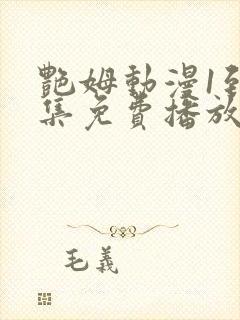 艷姆動漫1到
集免費播放
毛義